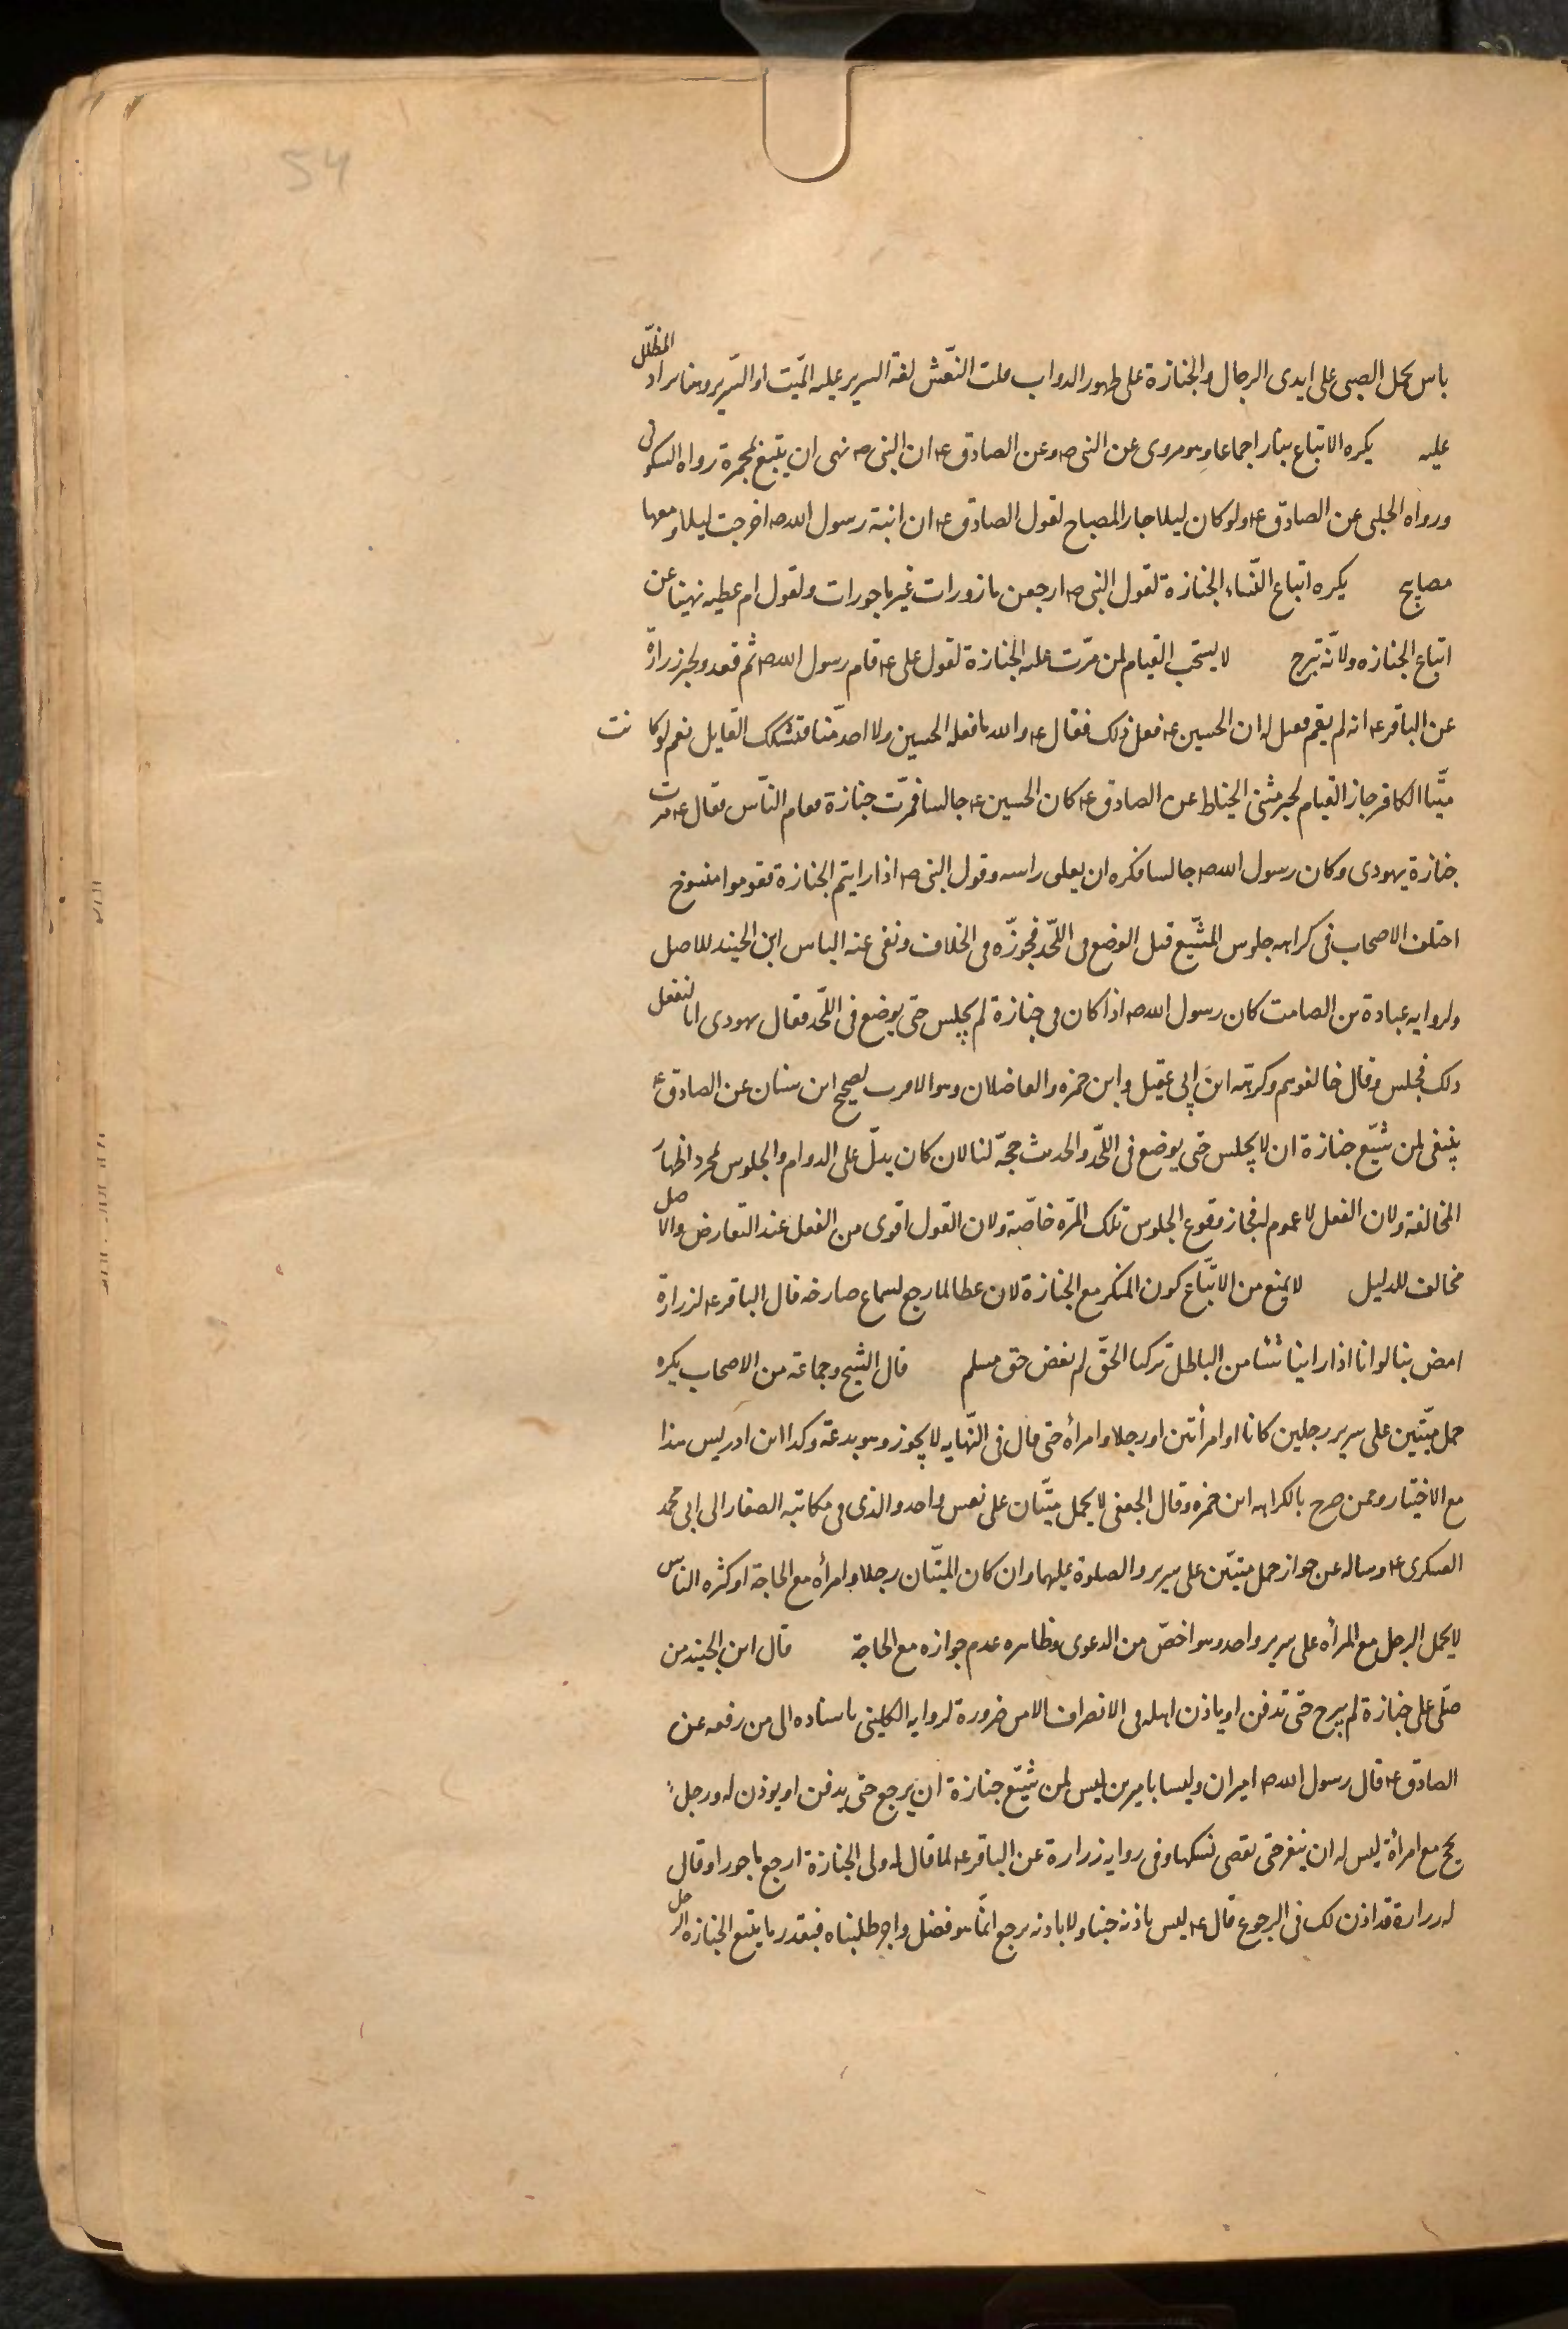 54
باس بحمل الصبى على ايدى الرجال والجنازة على ظهور الدواب قلت النّعش لغة السرير عليه الميّت او السّرير وهنا يراد المظلّل
عليه يكره الاتباع بنار اجماعا وهو مروى عن النبى ص وعن الصادق ع ان النبى ص نهى ان يتبع بمجمرة رواه السكونى
ورواه الحلبى عن الصادق ع ولو كان ليلا جاز المصباح لقول الصادق ع ان ابنة رسول الله ص اخرجت ليلا ومعها
مصابيح يكره اتباع النّساء الجنازة لقول النبى ص ارجعن مازورات غير ماجورات ولقول ام عطيه نهينا عن
اتباع الجنازه ولانّه تبرج لا يستحب القيام لمن مرّت عليه الجنازة لقول على ع قام رسول الله ص ثم قعد ولخبر زرارة
عن الباقر ع انه لم يقم فقيل له ان الحسين ع فعل ذلك فقال ع والله ما فعله الحسين ولا احد منّا فتشكك القايل نعم لو كانت
ميّتا الكافر جاز القيام لخبر مثنى الحناط عن الصادق ع كان الحسين ع جالسا فمرّت جنازة فقام النّاس فقال ع مرت
جنازة يهودى وكان رسول الله ص جالسا فكره ان يعلى راسه وقول النبى ص اذا رايتم الجنازة فقوموا منسوخ
اختلف الاصحاب فى كراهه جلوس المشّيع قبل الوضع فى اللّحد فجوّزه فى الخلاف ونفى عنه الباس ابن الجنيد للاصل
ولروايه عبادة بن الصامت كان رسول الله ص اذا كان فى جنازة لم يجلس حتى يوضع فى اللّحد فقال يهودى انا لنفعل
ذلك فجلس وقال خالفوهم وكرهه ابن ابى عقيل وابن حمزه والفاضلان وهو الاقرب لصحيح ابن سنان عن الصادق ع
ينبغى لمن شيّع جنازة ان لا يجلس حتى يوضع فى اللّحد والحديث حجّة لنا لان كان يدلّ على الدوام والجلوس لمجرد اظهار
المخالفة ولان الفعل لا عموم له فجاز وقوع الجلوس تلك المرّه خاصّة ولان القول اقوى من الفعل عند التعارض والاصل
مخالف للدليل لا يمنع من الاتّباع كون المنكر مع الجنازة لان عطا لما رجع لسماع صارخه قال الباقر ع لزرارة
امض بنا لو انا اذا راينا شئا من الباطل تركنا الحقّ لم نقض حق مسلم قال الشيخ وجماعة من الاصحاب يكره
حمل ميّتين على سرير رجلين كانا او امرأتين او رجلا وامرأه حتى قال فى النّهايه لا يجوز وهو بدعة وكذا ابن ادريس هذا
مع الاختيار وممن صرح بالكراهه ابن حمزه وقال الجعفى لا يحمل ميّتان على نعش واحد والذى فى مكاتبه الصفار الى ابى محمد
العسكرى ع وساله عن جواز حمل ميتّين على سرير والصلوة عليهما وان كان الميّتان رجلا وامرأه مع الحاجة او كثره الناس
لا يحمل الرجل مع المرأه على سرير واحد وهو اخصّ من الدعوى وظاهره عدم جوازه مع الحاجة قال ابن الجنيد من
صلّى على جنازة لم يبرح حتى تدفن او ياذن اهله فى الانصراف الا من ضرورة لروايه الكلينى باسناده الى من رفعه عن
الصادق ع قال رسول الله ص اميران وليسا باميرين ليس لمن شيّع جنازة ان يرجع حتى يدفن او يوذن له ورجلٌ
يحج مع امرأة ليس له ان ينفر حتى تقضى نسكها وفى روايه زرارة عن الباقر ع لما قال له ولى الجنازة ارجع ماجورا وقال
له زرارة قد اذن لك فى الرجوع قال ع ليس باذنه جئنا ولا باذنه نرجع انّما هو فضل واجر طلبناه فبقدر ما يتبع الجنازه الرجل